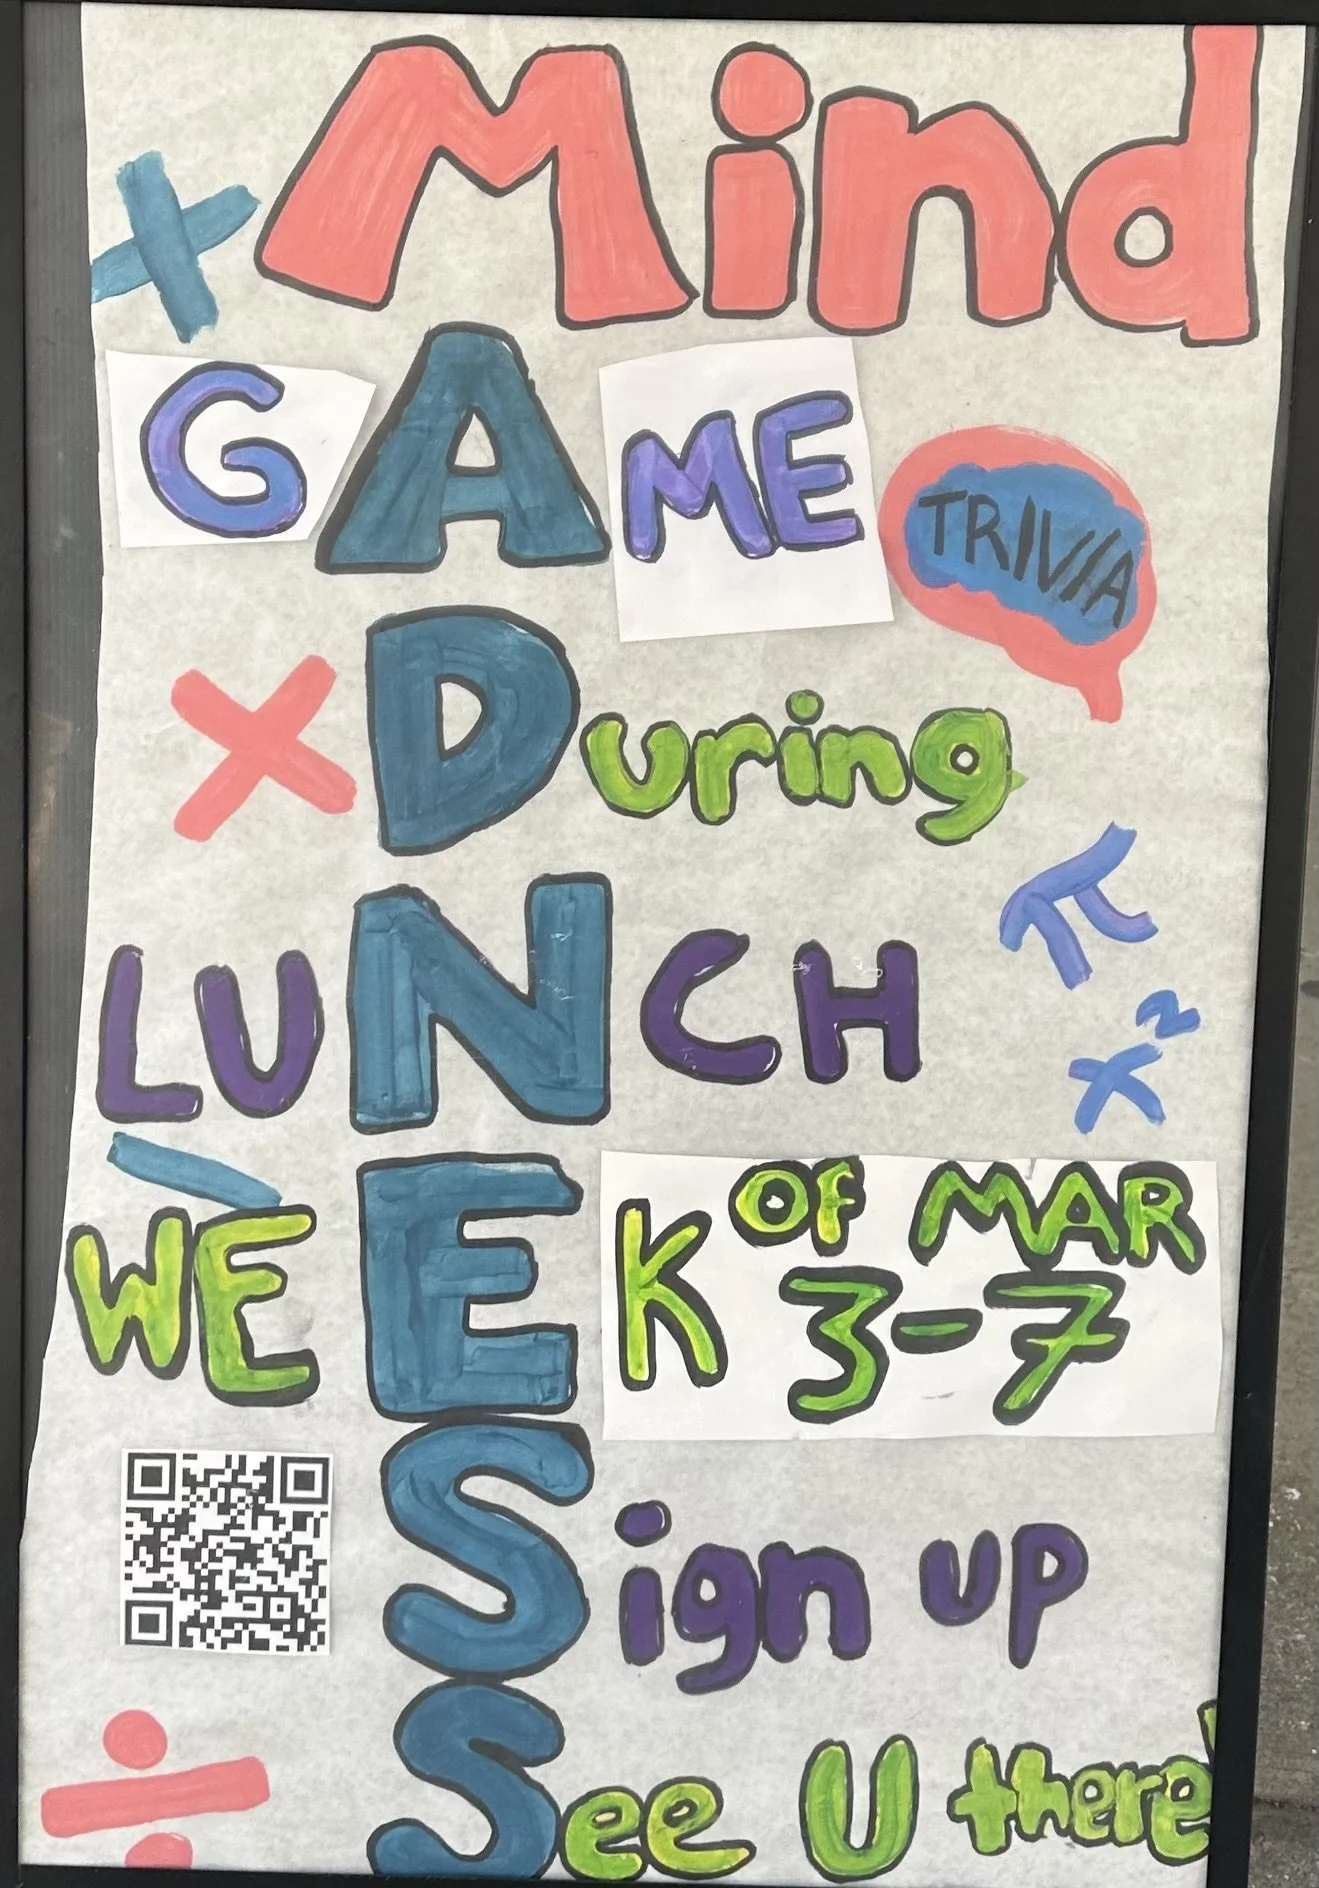 Mind
GAME
TRIVIA
During
π
LUNCH
x²
WEEK OF MAR
3-7
Sign up
See U there!